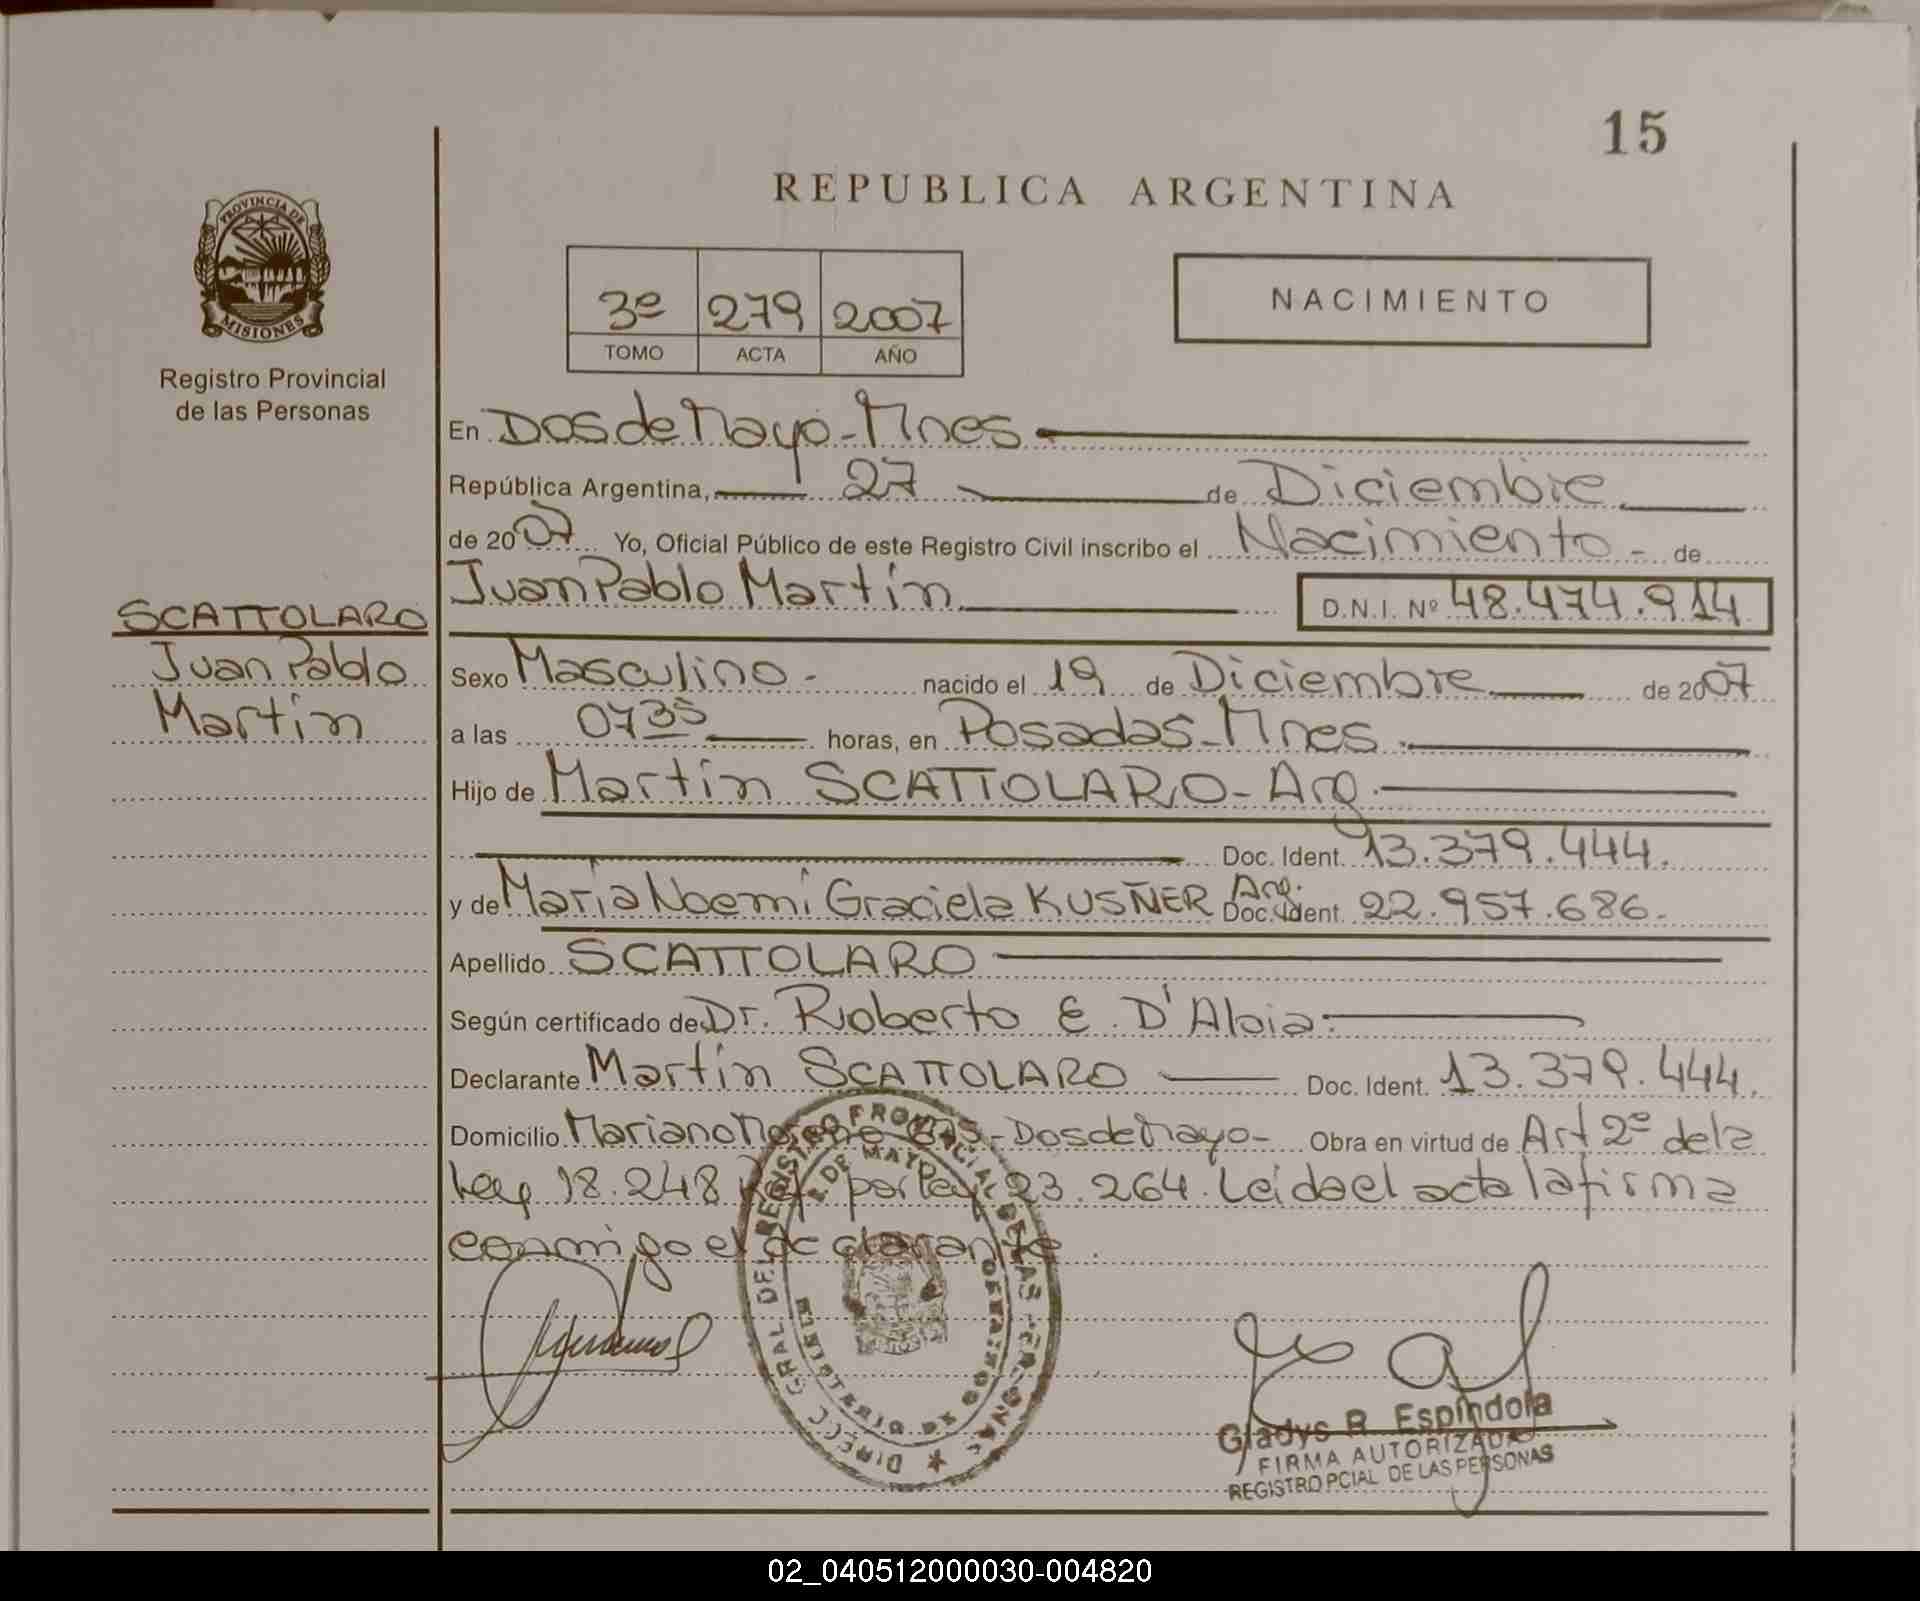 15
REPUBLICA ARGENTINA
PROVINCIA DE
MISIONES
Registro Provincial
de las Personas
3º 279 2007
TOMO ACTA AÑO
NACIMIENTO
En Dos de Mayo - Mnes
República Argentina, 27 de Diciembre
de 2007 Yo, Oficial Público de este Registro Civil inscribo el Nacimiento - de
Juan Pablo Martín D.N.I. Nº 48.474.914
SCATTOLARO
Juan Pablo
Martín
Sexo Masculino - nacido el 19 de Diciembre de 2007
a las 0735 horas, en Posadas - Mnes
Hijo de Martín SCATTOLARO - Arg.
Doc. Ident. 13.379.444.
y de María Noemí Graciela KUSÑER Arg. Doc. Ident. 22.957.686.
Apellido SCATTOLARO
Según certificado de Dr. Roberto E. D'Aloia
Declarante Martín SCATTOLARO Doc. Ident. 13.379.444.
Domicilio Mariano Moreno - Dos de Mayo - Obra en virtud de Art 2º de la
Ley 18.248 por Ley 23.264. Leida el acta la firma
conmigo el declarante.
DIRECC GRAL DEL REGISTRO PROVINCIAL DE LAS PERSONAS
2 DE MAYO
Gladys R. Espíndola
FIRMA AUTORIZADA
REGISTRO PCIAL DE LAS PERSONAS
02_040512000030-004820